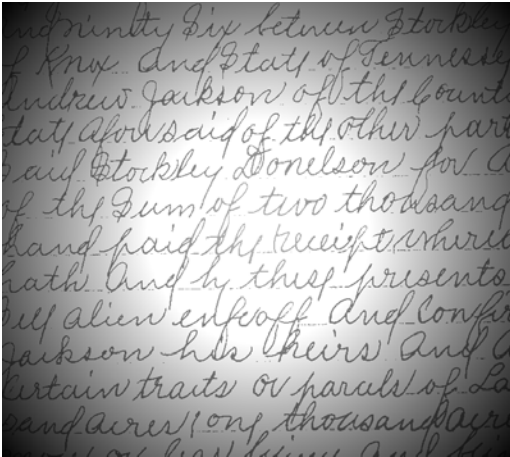 and ninety Six between Stockley
of Knox and State of Tennessee
Andrew Jackson of the County
State aforesaid of the other part
Said Stockley Donelson for
of the Sum of two thousand
hand paid the receipt where
hath and by these presents
Sell alien enfeoff and Confir
Jackson his heirs and
Certain tracts or parcels of La
sand acres, one thousand acre
more or less being and